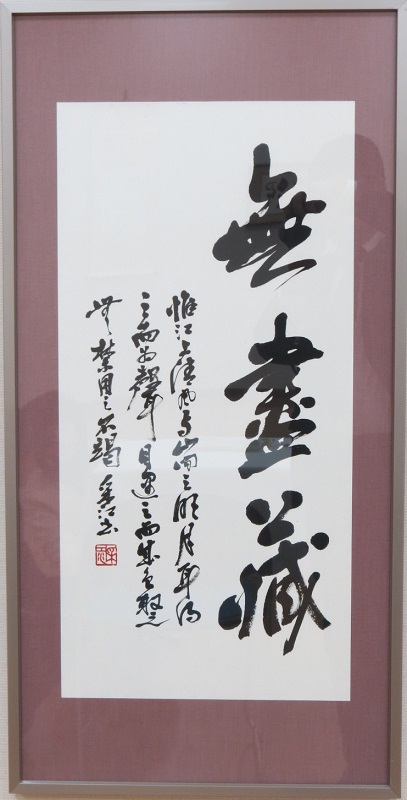 無盡藏
惟江上清風与山間之明月耳得
之而為聲目遇之而成色取之
無禁用之不竭 江書